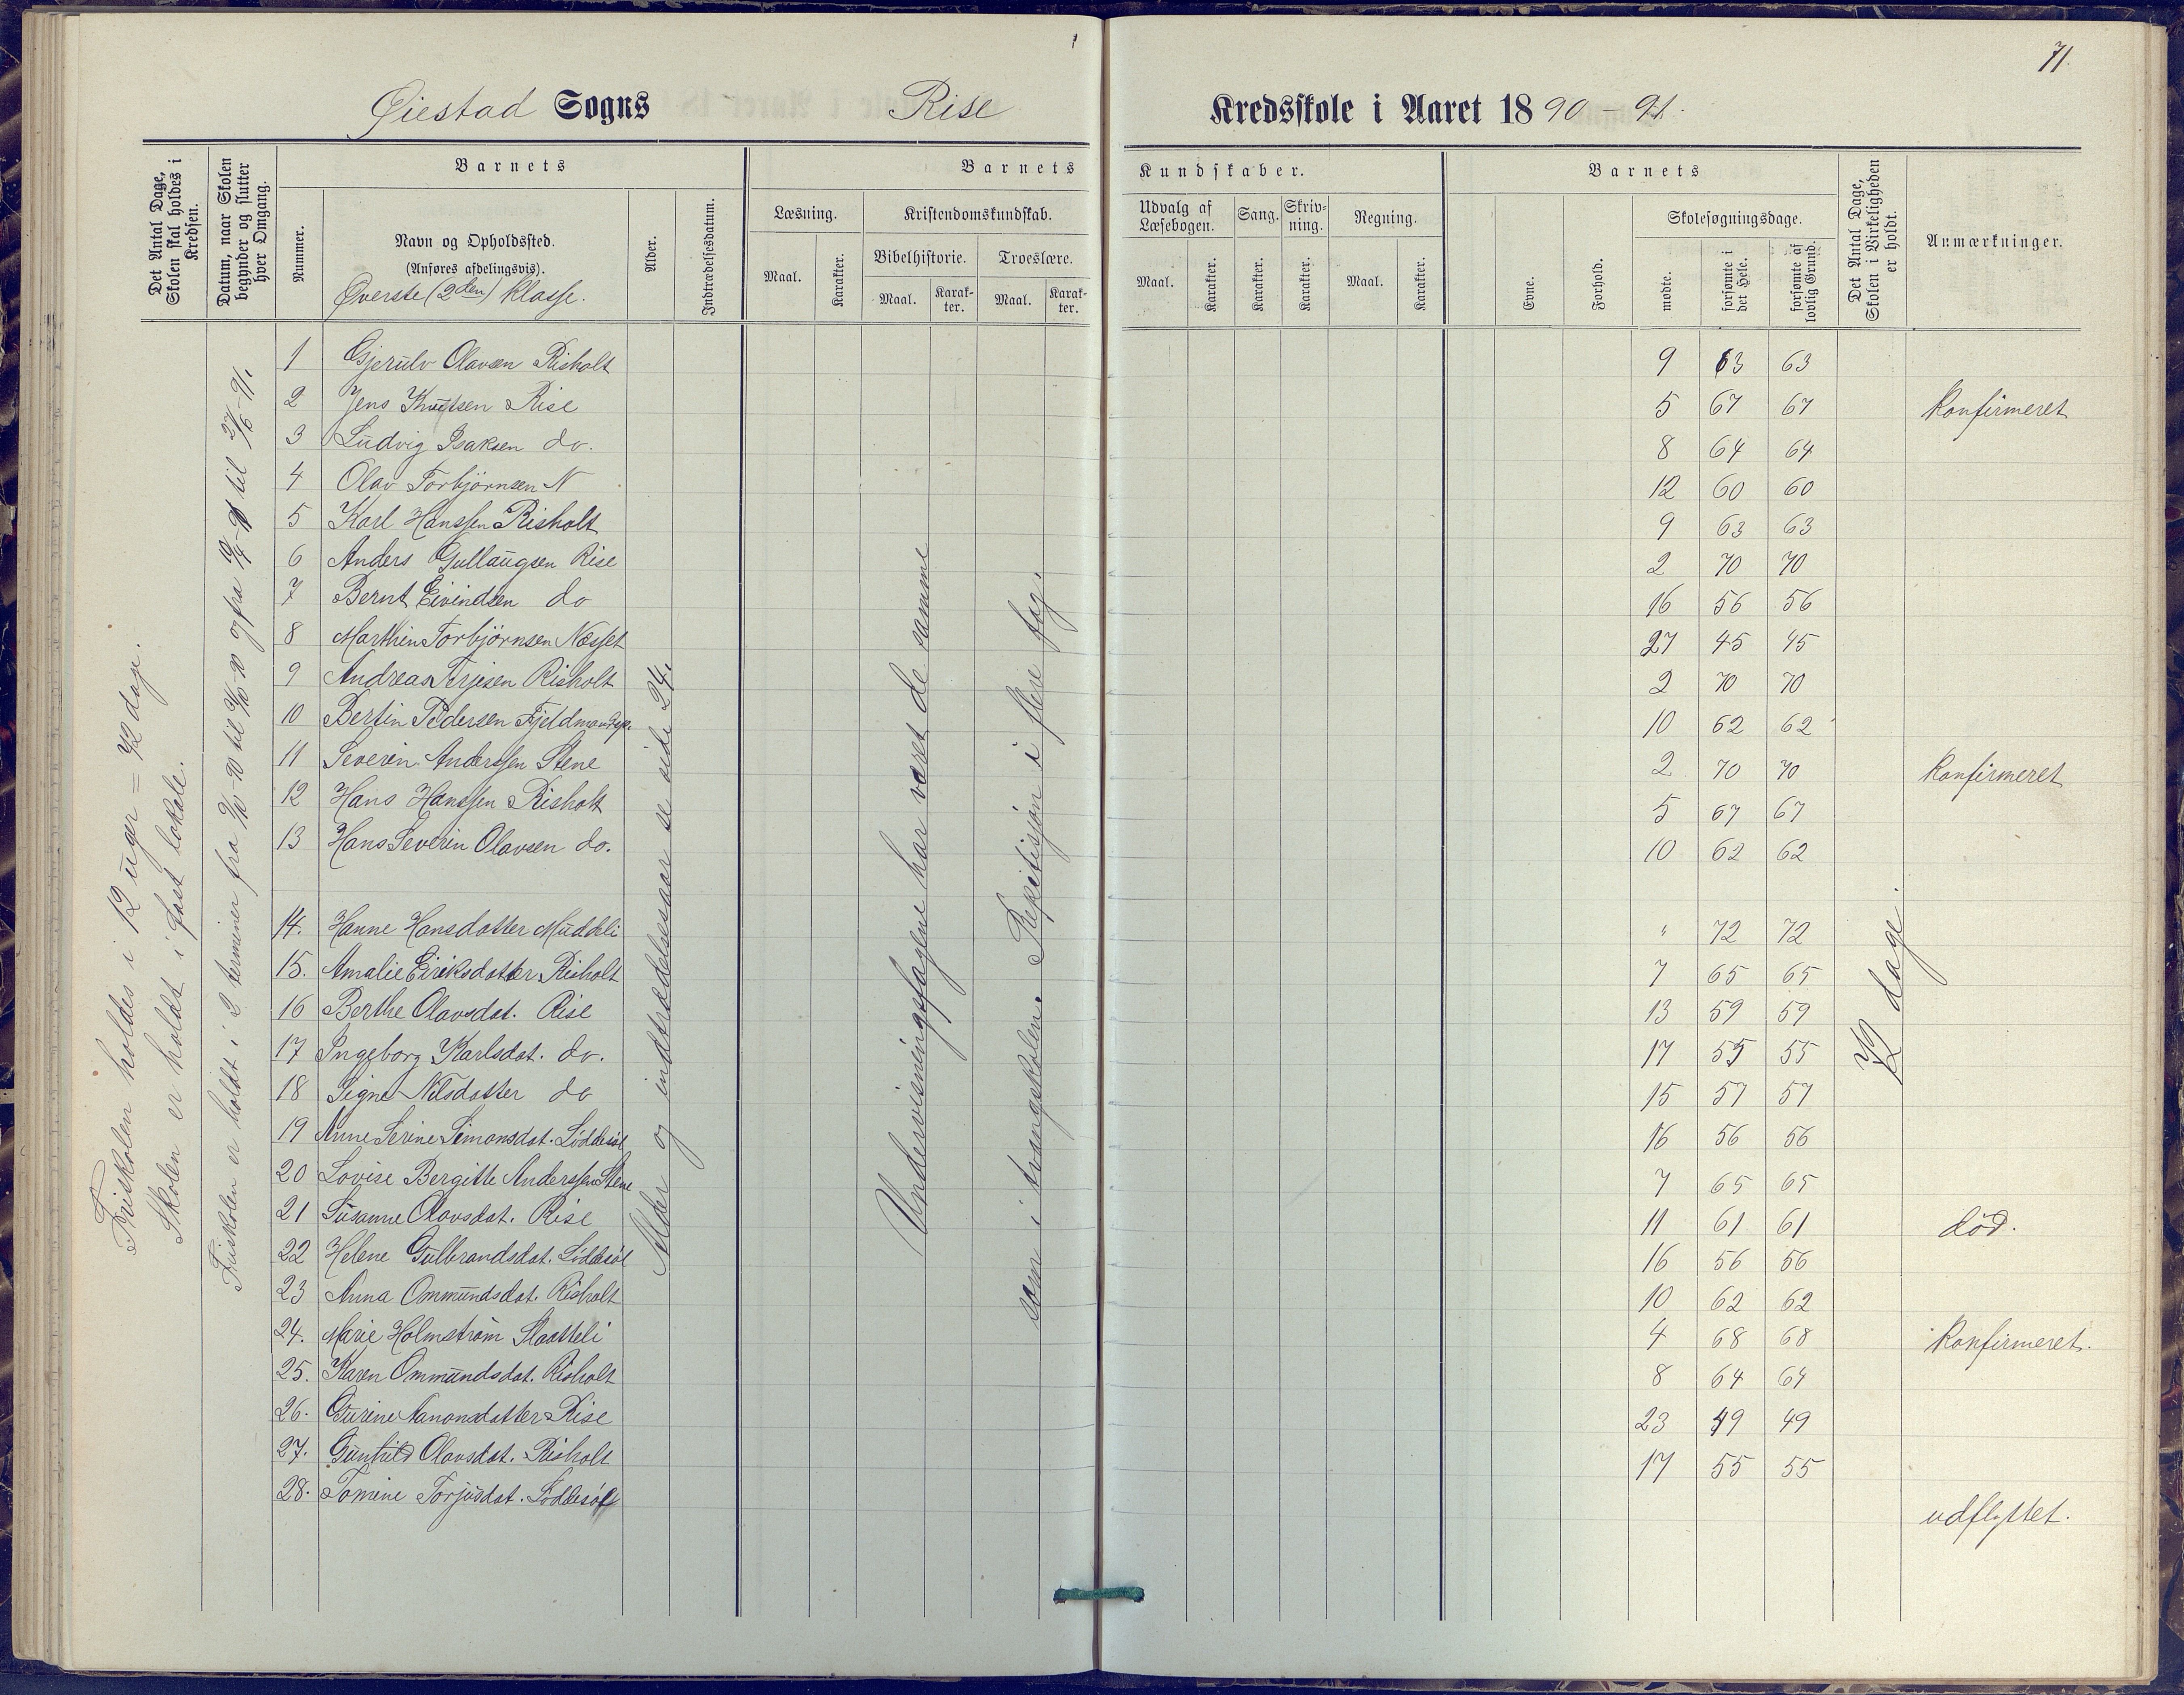 71.
Øiestad Sogns Rise Kredsskole i Aaret 1890-91.
Det Antal Dage, Skolen skal holdes i Kredsen.
Datum, naar Skolen begynder og slutter hver Omgang.
Barnets
Nummer.
Navn og Opholdssted.
(Anføres afdelingsvis).
Øverste (2den) klasse.
Alder.
Indtrædelsesdatum.
Barnets Kundskaber.
Læsning.
Maal. Karakter.
Kristendomskundskab.
Bibelhistorie. Troeslære.
Maal. Karakter. Maal. Karakter.
Udvalg af Læsebogen. Sang. Skrivning. Regning.
Maal. Karakter. Karakter. Karakter. Maal. Karakter.
Barnets
Evne. Forhold.
Skolesøgningsdage.
mødte. forsømte i det Hele. forsømte af lovlig Grund.
Det Antal Dage, Skolen i Virkeligheden er holdt.
Anmærkninger.
Friskolen holdes i 12 uger = 72 dage.
Skolen er holdt i fast lokale.
Friskolen er holdt i 2 terminer fra
Alder og indtrædelsesaar se side 24.
Undervisningsfagene har været de samme
som i tvangsskolen. Repetisjon i flere fag.
72 dage.
1 Gjerulv Olavsen Risholt 9 63 63
2 Jens Knutsen Rise 5 67 67 Konfirmeret
3 Ludvig Isaksen do. 8 64 64
4 Olav Torbjørnsen N 12 60 60
5 Karl Hanssen Risholt 9 63 63
6 Anders Gullaugsen Rise 2 70 70
7 Bernt Eivindsen do 16 56 56
8 Marthin Torbjørnsen Næsset 27 45 45
9 Andreas Terjesen Risholt 2 70 70
10 Bertin Pedersen 10 62 62
11 Severin Anderssen Stene 2 70 70 Konfirmeret
12 Hans Hanssen Risholt 5 67 67
13 Hans Severin Olavsen do. 10 62 62
14. Hanne Hansdotter Muddeli " 72 72
15. Amalie Eiriksdotter Risholt 7 65 65
16 Berthe Olavsdat. Rise 13 59 59
17 Ingeborg Karlsdat. do. 17 55 55
18 Signe Nilsdotter do 15 57 57
19 Anne Serine Simonsdat. Løddesøl 16 56 56
20 Lovise Bergitte Anderssen Stene 7 65 65
21 Susanne Olavsdat. Rise 11 61 61 død.
22 Helene Gulbrandsdat. Løddesøl 16 56 56
23 Anna Ommundsdat. Risholt 10 62 62
24. Marie Holmstrøm Slaatteli 4 68 68 Konfirmeret.
25. Karen Ommundsdat. Risholt 8 64 64
26. Gurine Aanonsdatter Rise 23 49 49
27. Gunhild Olavsdat. Risholt 17 55 55
28. Tomine Torjusdat. Løddesøl udflyttet.